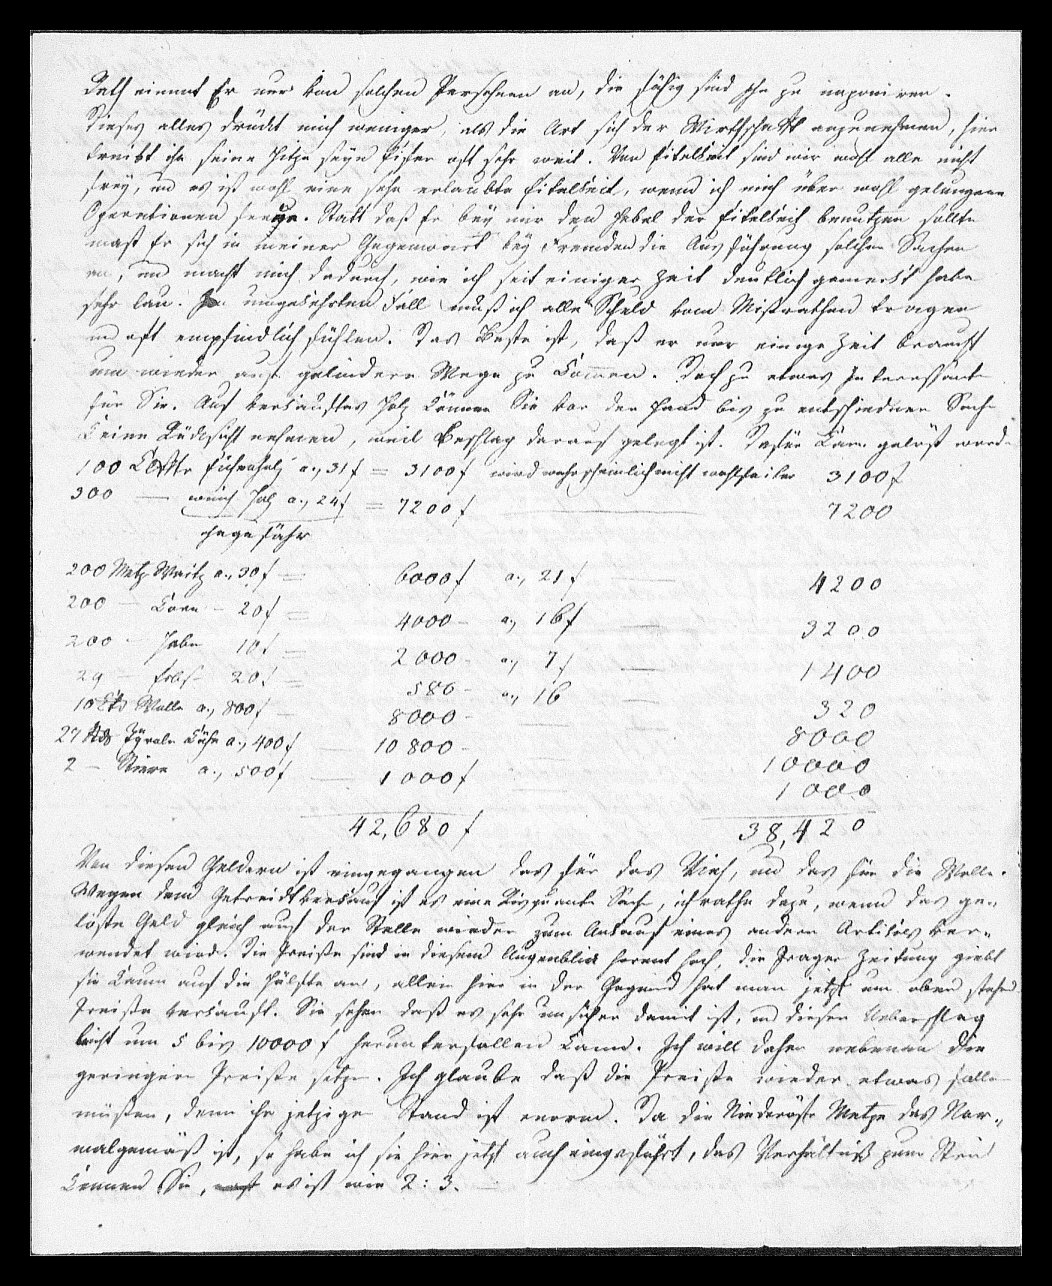 Rath nimmt Er nur von solchen Personen an, die fähig sind ihn zu imponiren.
Dieses alles drückt mich weniger, als die Art sich der Wirthschaft anzunehmen, hier
treibt ihn seine Hitze seyn Eifer oft sehr weit. Von Eitelkeit sind wir wohl alle nicht
frey, und es ist wohl eine sehr erlaubte Eitelkeit, wenn ich mich über wohl gelungene
Operationen freue. Statt daß Er bey mir den Hebel der Eitelkeit benutzen sollte
maßt Er sich in meiner Gegenwart bey Fremden die Ausführung solcher Sachen
an, und macht mich dadurch, wie ich seit einiger Zeit deutlich gemerkt habe
sehr lau. Im umgekehrten Fall muß ich alle Schuld vom Mißrathen tragen
u oft empfindlich fühlen. Das Beste ist, daß er nur einige Zeit braucht
um wieder auf gelindere Wege zu kommen. Doch zu etwas Interessante
für Sie. Auf verkauftes Holz können Sie vor der Hand bis zu entschiedner Sache
keine Rücksicht nehmen, weil Beschlag darauf gelegt ist. Dafür kann gelößt werd.
100 Klftr Eichenholz a., 31 f = 3100 f wird wahrscheinlich nicht wohlfeiler 3100 f
300 — weich Holz a., 24 f = 7200 f — 7200
ohngefähr
200 Metz Waitz a., 30 f = 6000 f a., 21 f — 4200
200 — Korn — 20 f = 4000 — a., 16 f — 3200
200 — Haber 10 f = 2000 a., 7 f — 1400
29 — Erbs — 20 f = 580 — a., 16 320
10 Ctr Wolle a., 800 f — 8000 — 8000
27 Stk Tyroler Kühe a., 400 f — 10800 — 10000
2 — Stiere a., 500 f — 1000 f — 1000
42,680 f 38,420
Von diesen Geldern ist eingegangen das für das Vieh, und das für die Wolle.
Wegen dem Getreidtverkauf ist es eine Sache, ich rathe dazu, wenn das ge-
löste Geld gleich auf der Stelle wieder zum Ankauf eines andern Artikels ver-
wendet wird. Die Preiße sind in diesem Augenblick horent hoch, die Prager Zeitung giebt
sie kaum auf die Hälfte an, allein hier in der Gegend hat man jetzt um oben stehend
Preiße verkauft. Sie sehen daß es sehr unsicher damit ist, und dieser Ueberschlag
leicht um 5 bis 10000 f herunterfallen kann. Ich will daher nebenan die
geringern Preiße setzen. Ich glaube daß die Preiße wieder etwas fallen
müßen, denn ihr jetziger Stand ist enorm. Da die Niederöstr Metze das Nor-
malgemäß ist, so habe ich sie hier jetzt auch eingeführt, das Verhältniß zum Strich
kennen Sie, es ist wie 2 : 3.